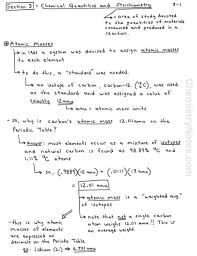 Section 3: Chemical Quantities and Stoichiometry 3-1
→ a area of study devoted
to the quantities of materials
consumed and produced in a
reaction.
Atomic Masses
→ in 1961 a system was devised to assign atomic masses
to each element
→ to do this, a "standard" was needed
→ an isotope of carbon, carbon-12 was used
as the standard and was assigned a value of
exactly 12 amu
→ amu = atomic mass units
→ so, why is carbon's atomic mass 12.01 amu on the
Periodic Table?
→ Answer: most elements occur as a mixture of isotopes
and natural carbon is found as 98.89% and
1.11%
→ so, (.9889)(12 amu) + (.0111)(13 amu)
= 12.01 amu
→ atomic mass is a "weighted avg."
of isotopes
→ this is why atomic
masses of elements
are expressed as
decimals on the Periodic Table
→ note that not a single carbon
atom weighs 12.01 amu!! This is
an average weight.
ChemistryNotes.com